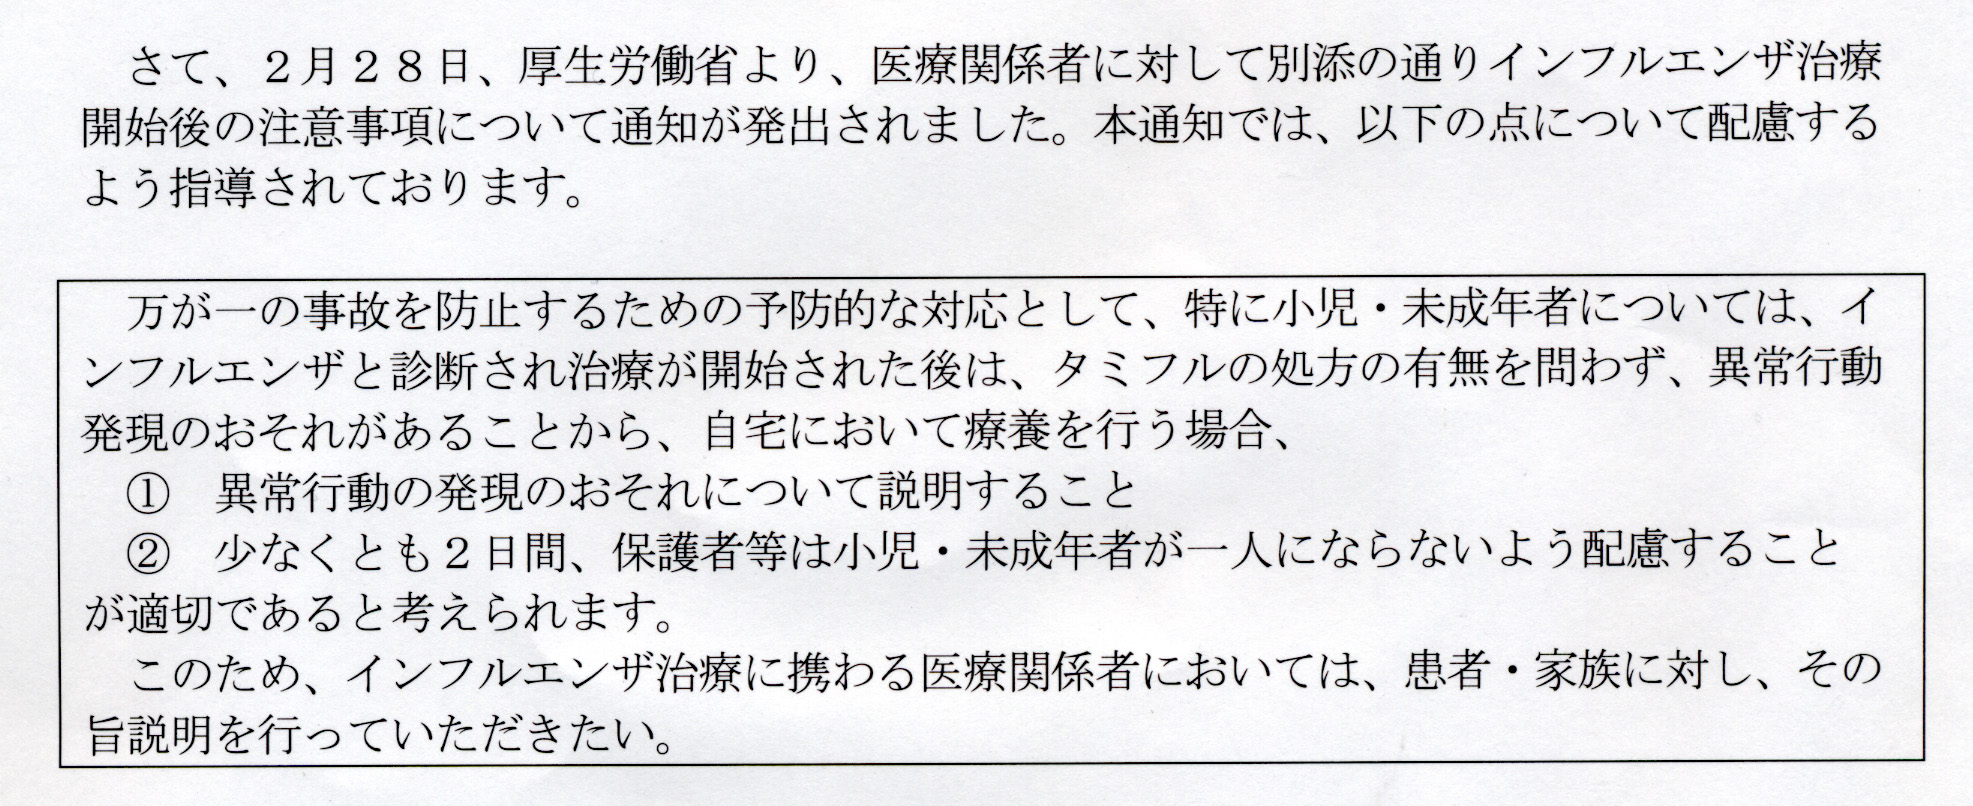 さて、２月２８日、厚生労働省より、医療関係者に対して別添の通りインフルエンザ治療
開始後の注意事項について通知が発出されました。本通知では、以下の点について配慮する
よう指導されております。
万が一の事故を防止するための予防的な対応として、特に小児・未成年者については、イ
ンフルエンザと診断され治療が開始された後は、タミフルの処方の有無を問わず、異常行動
発現のおそれがあることから、自宅において療養を行う場合、
①　異常行動の発現のおそれについて説明すること
②　少なくとも２日間、保護者等は小児・未成年者が一人にならないよう配慮すること
が適切であると考えられます。
このため、インフルエンザ治療に携わる医療関係者においては、患者・家族に対し、その
旨説明を行っていただきたい。